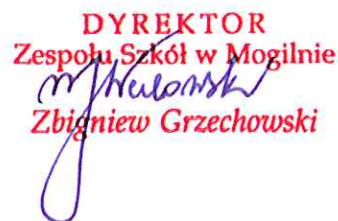 DYREKTOR
Zespołu Szkół w Mogilnie
Zbigniew Grzechowski